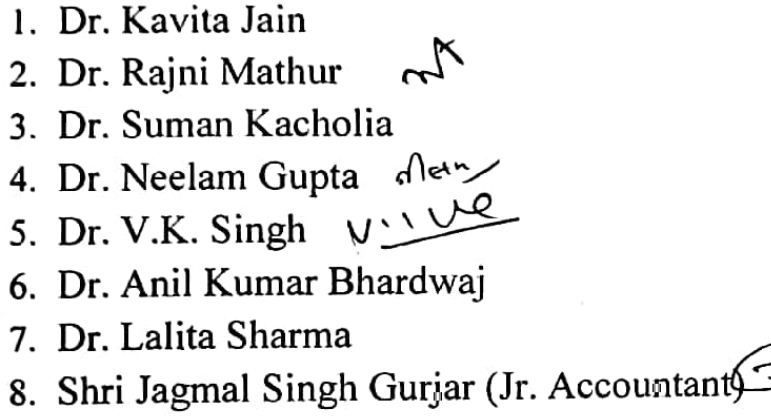 1. Dr. Kavita Jain
2. Dr. Rajni Mathur
3. Dr. Suman Kacholia
4. Dr. Neelam Gupta
5. Dr. V.K. Singh
6. Dr. Anil Kumar Bhardwaj
7. Dr. Lalita Sharma
8. Shri Jagmal Singh Gurjar (Jr. Accountant)